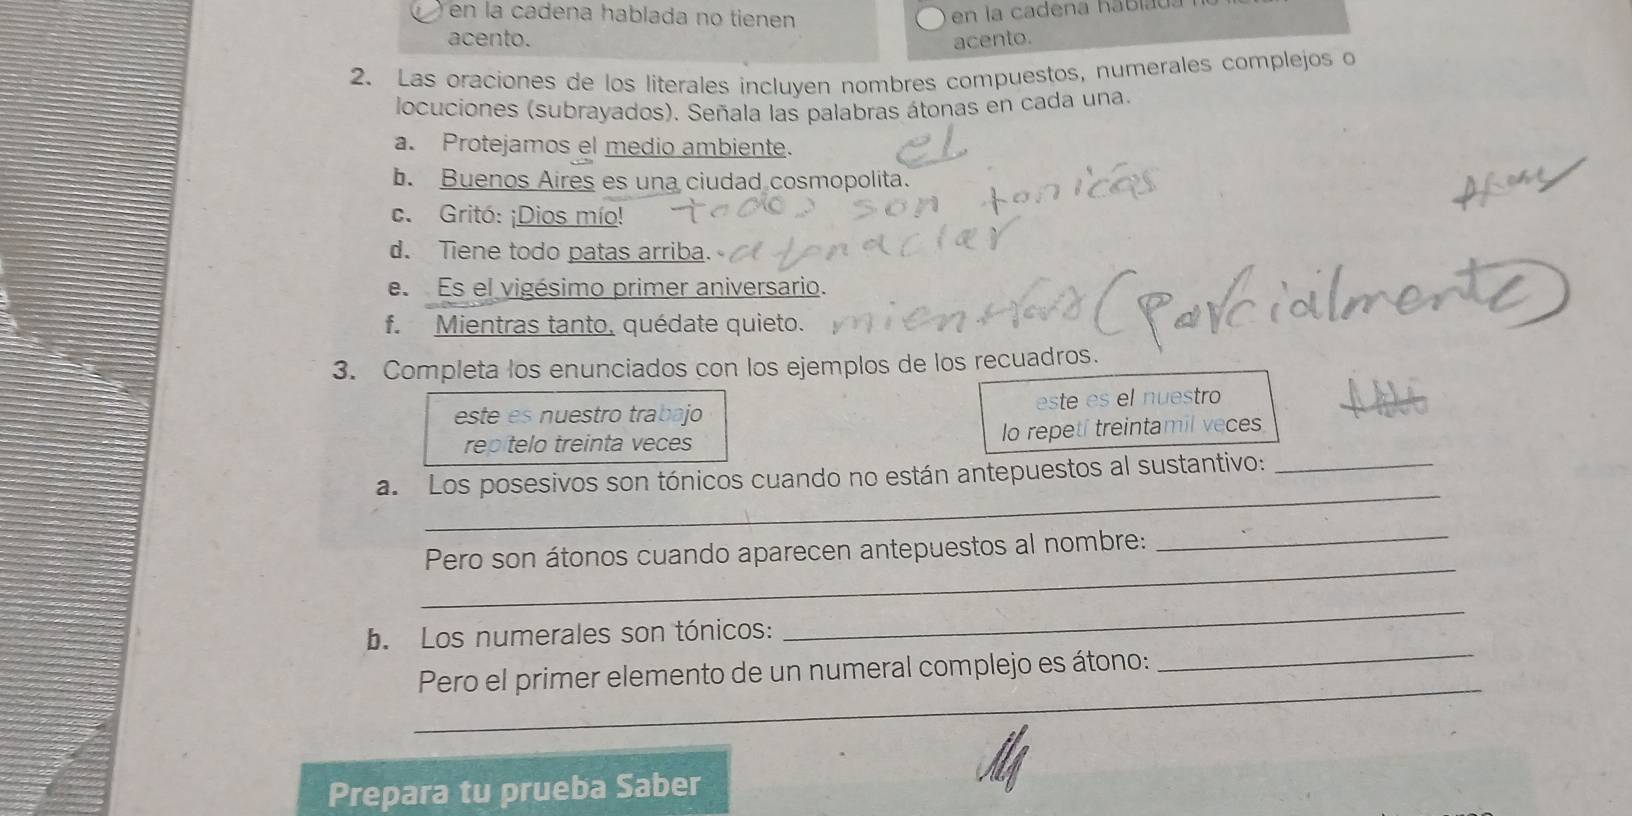 en la cadena hablada no tienen
acento.
en la cadena hablada
acento.
2. Las oraciones de los literales incluyen nombres compuestos, numerales complejos o
locuciones (subrayados). Señala las palabras átonas en cada una.
a. Protejamos el medio ambiente. el
b. Buenos Aires es una ciudad cosmopolita.
todos son tonicas
c. Gritó: ¡Dios mío!
d. Tiene todo patas arriba.
e. Es el vigésimo primer aniversario.
f. Mientras tanto, quédate quieto. mientras (parcialmente)
3. Completa los enunciados con los ejemplos de los recuadros.
este es nuestro trabajo
repítelo treinta veces
este es el nuestro
lo repetí treintamil veces
a. Los posesivos son tónicos cuando no están antepuestos al sustantivo:
Pero son átonos cuando aparecen antepuestos al nombre:
b. Los numerales son tónicos:
Pero el primer elemento de un numeral complejo es átono:
Prepara tu prueba Saber